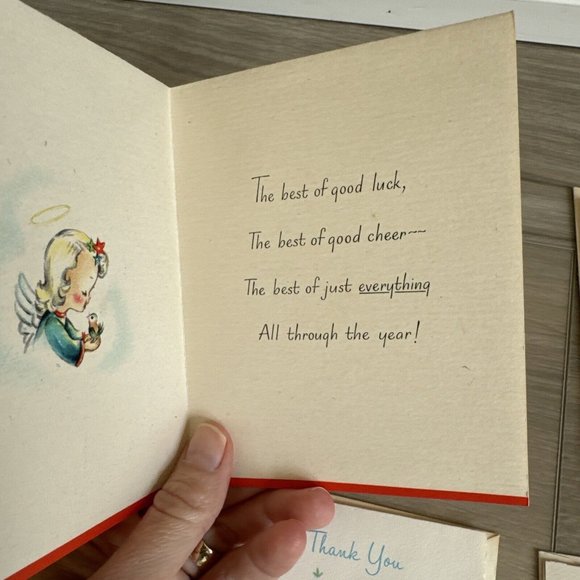 The best of good luck,
The best of good cheer~~
The best of just everything
All through the year!
Thank You